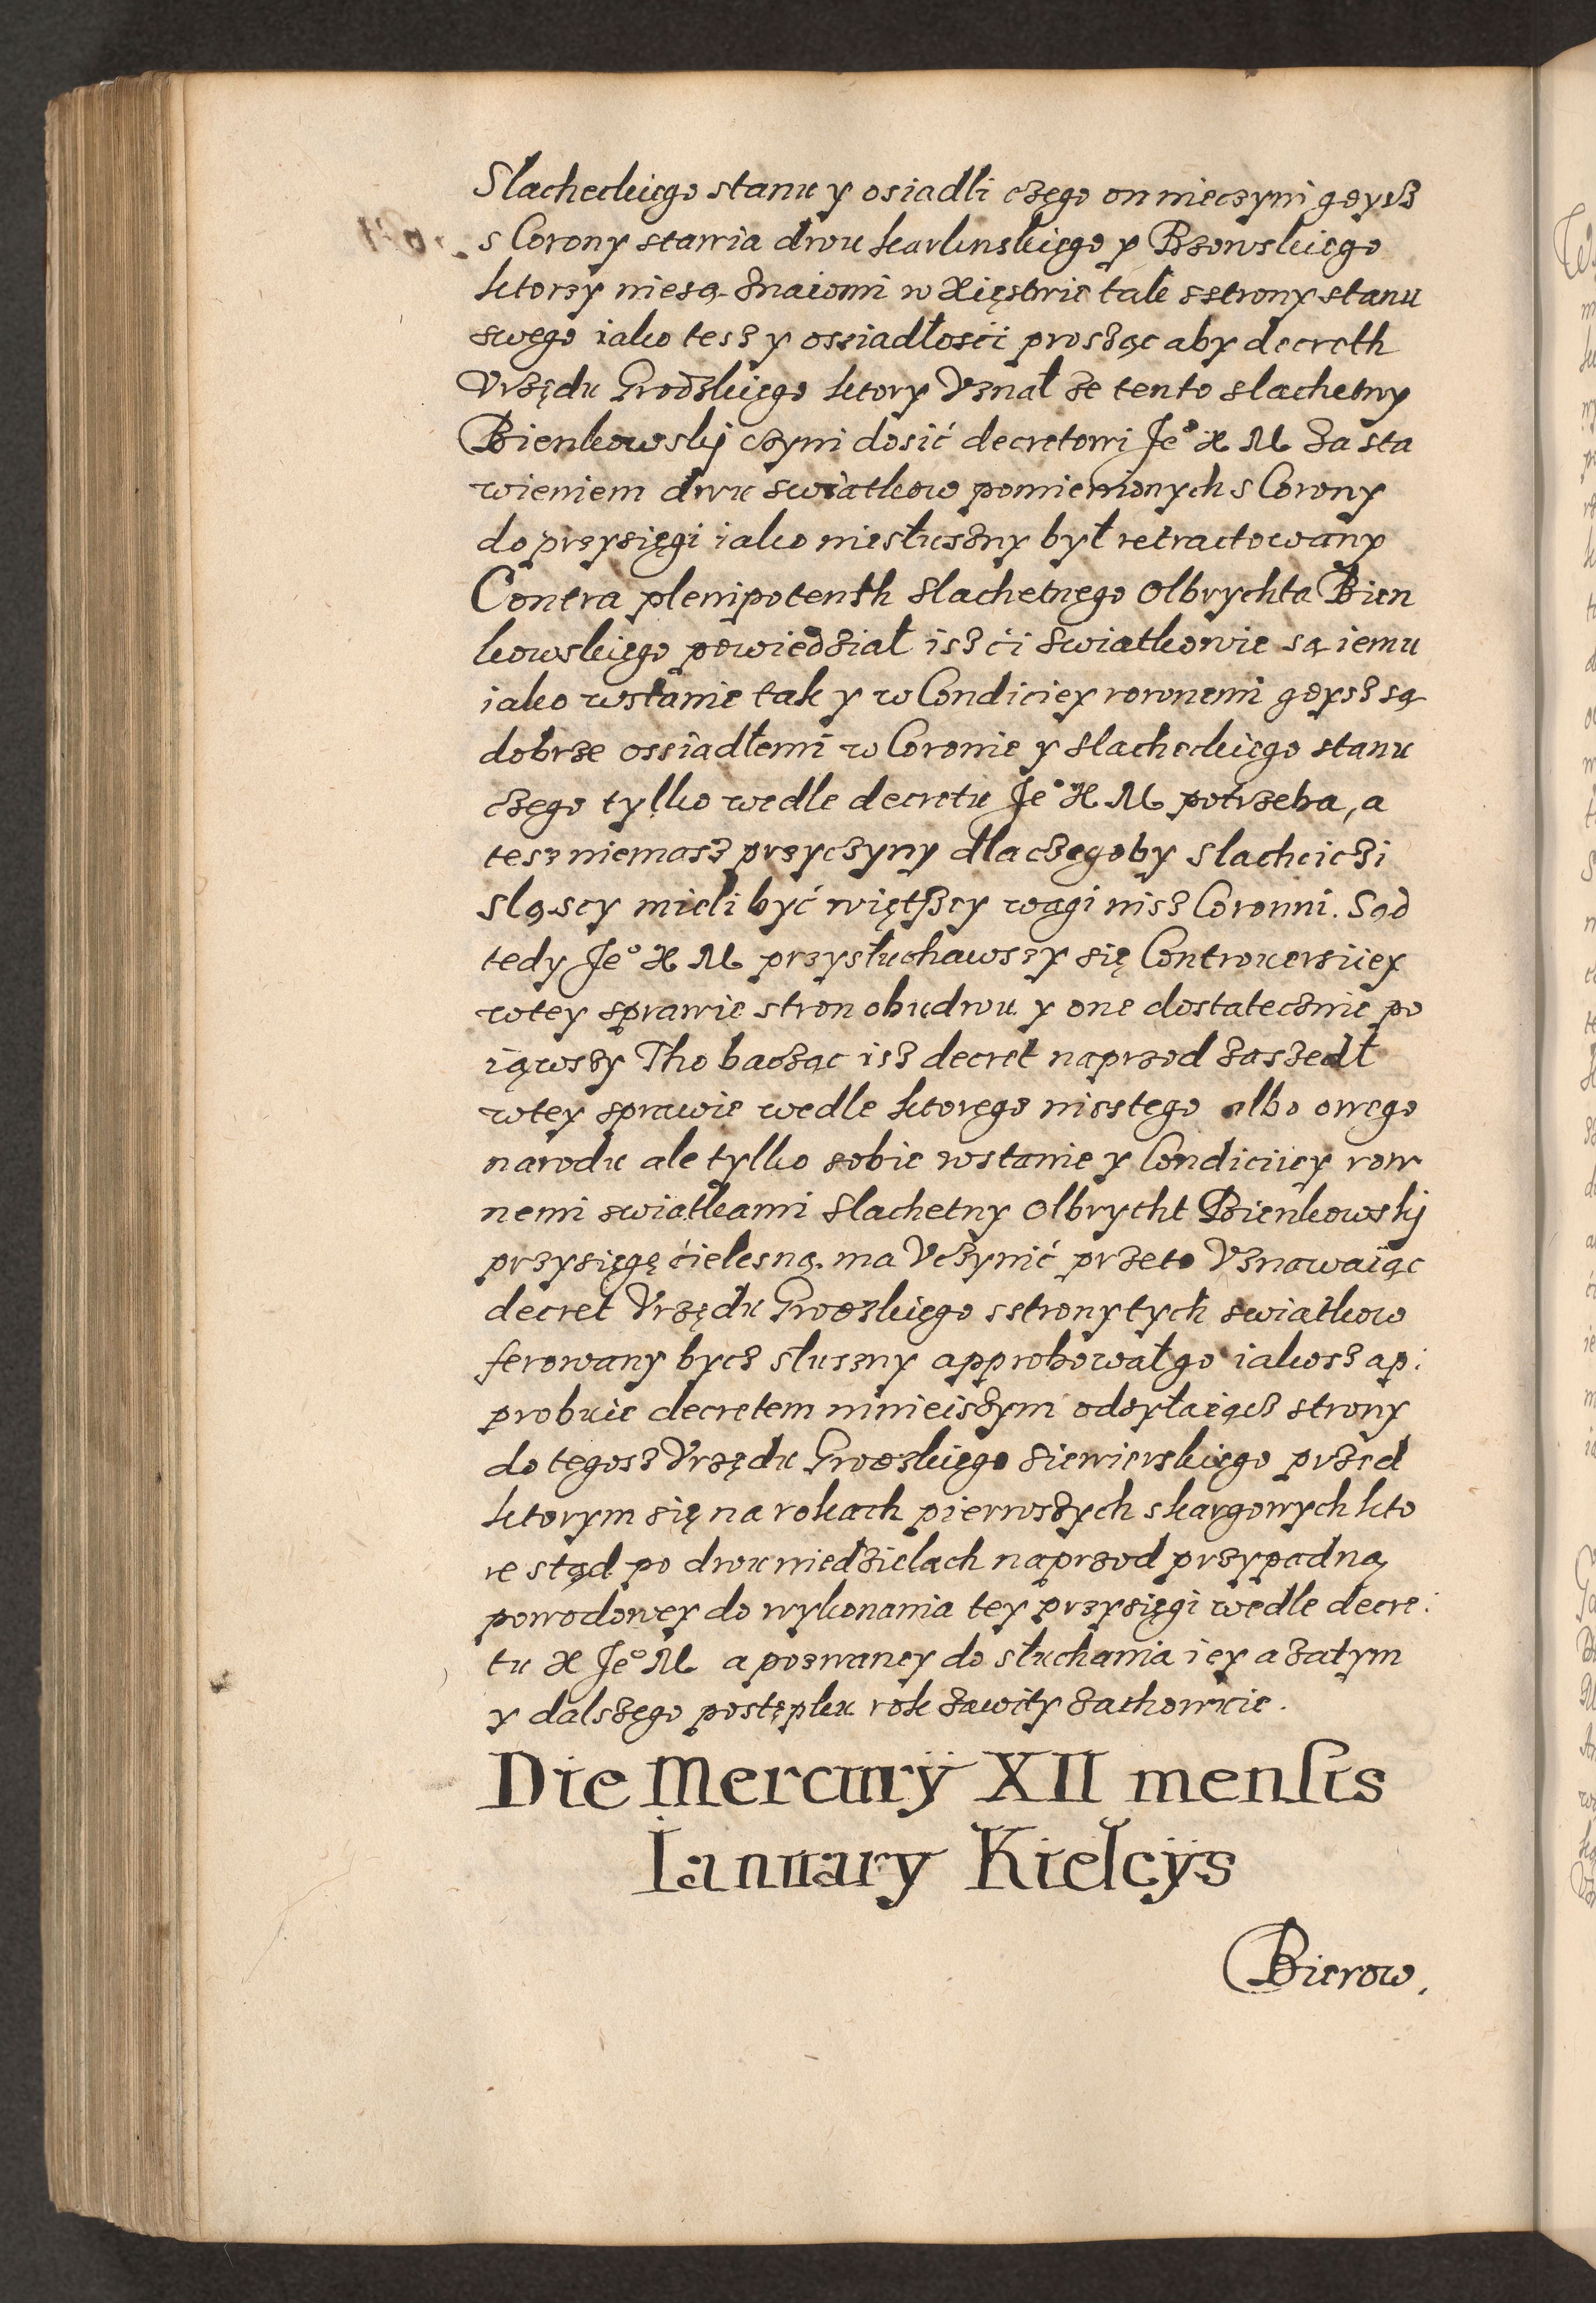 Slacheckiego stanu y osiadli czego on nieczyni gdysz
s Corony stawia dwu karlinskiego y Rzowskiego
ktorzy niesą znaiomi w Xięstwie tak sstrony stanu
swego iako tesz y ossiadłosci prosząc aby decreth
Vrzędu Grodzkiego ktory Vznał że tento slachetny
Bienkowskj czyni dosić decretowi Jeº X M za sta
wieniem dwu swiatkow pomienionych s Corony
do przysięgi iako niesłuszny był retractowany
Contra plenipotenth slachetnego Olbrychta Bien
kowskiego powiedział isz ći swiatkowie są iemu
iako wstanie tak y w Condiciey rownemi gdysz są
dobrze ossiadłemi w Coronie y slacheckiego stanu
czego tylko wedle decretu Jeº X M potrzeba, a
tesz niemasz przyczyny dla czegoby slachciczi
sląscy mieli być więtszey wagi nisz Coronni. Sąd
tedy Jeº X M przysłuchawszy się Controuersiiey
wtey sprawie stron obudwu y one dostatecznie po
iąwszy Tho bacząc isz decret naprzod zaszedł
wtey sprawie wedle ktorego nisstego albo owego
narodu ale tylko sobie wstanie y Condiciiey row
nemi swiatkami slachetny Olbrycht Bienkowskj
przysięgę ćielesną ma Vczynić przeto Vznawaiąc
decret Vrzędu Grodzkiego sstrony tych swiatkow
ferowany bycz sluszny approbował go iakosz ap:
probuie decretem ninieiszym odsyłaiącz strony
do tegosz Vrzędu Grodzkiego siewierskiego przed
ktorym się na rokach pierwszych skargowych kto
re stąd po dwu niedzielach naprzod przypadną
powodowey do wykonania tey przysięgi wedle decre:
tu X Jeº M a pozwaney do słuchania iey a zatym
y dalszego postępku rok zawity zachowuie.
Die Mercurÿ XII mensis
Ianuary Kielcÿs
Bierow.